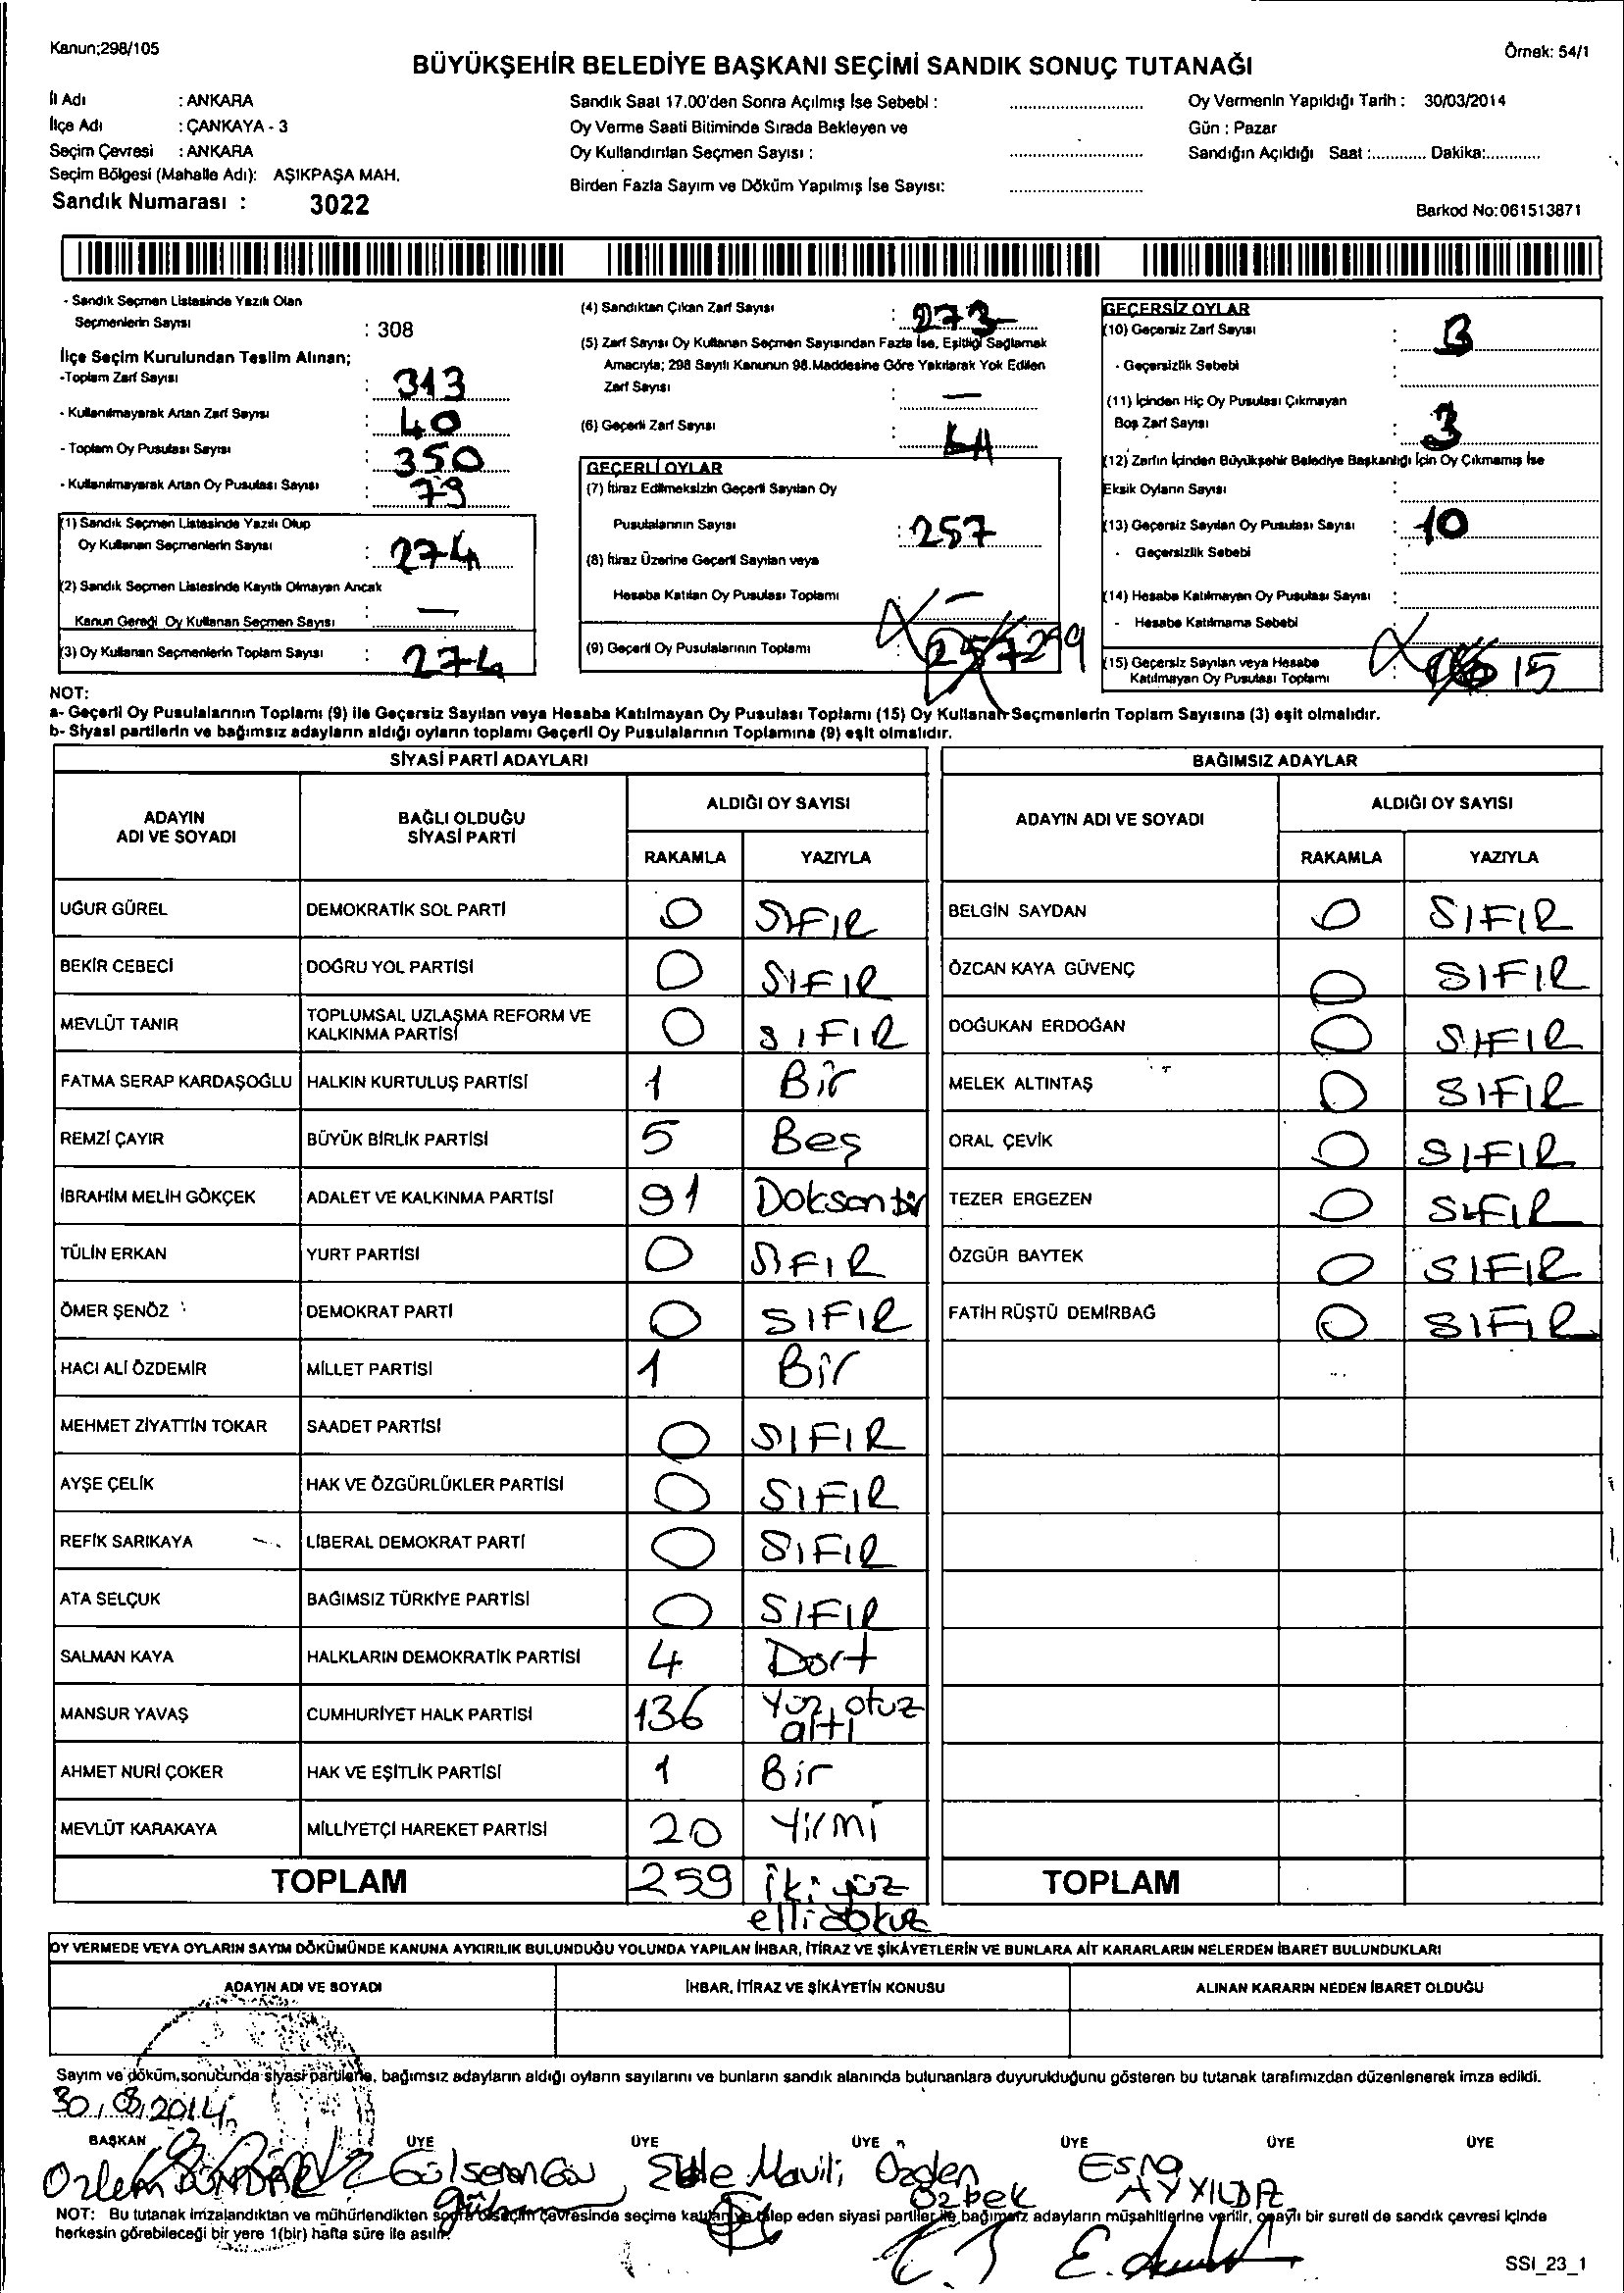 Kanun;298/105
Örnek: 54/1
BÜYÜKŞEHİR BELEDİYE BAŞKANI SEÇİMİ SANDIK SONUÇ TUTANAĞI
İl Adı : ANKARA
İlçe Adı : ÇANKAYA - 3
Seçim Çevresi : ANKARA
Seçim Bölgesi (Mahalle Adı): AŞIKPAŞA MAH.
Sandık Numarası : 3022
Sandık Saat 17.00'den Sonra Açılmış İse Sebebi :
Oy Verme Saati Bitiminde Sırada Bekleyen ve
Oy Kullandırılan Seçmen Sayısı :
Birden Fazla Sayım ve Döküm Yapılmış İse Sayısı:
Oy Vermenin Yapıldığı Tarih : 30/03/2014
Gün : Pazar
Sandığın Açıldığı Saat :............ Dakika:............
Barkod No:061513871
- Sandık Seçmen Listesinde Yazılı Olan
Seçmenlerin Sayısı : 308
İlçe Seçim Kurulundan Teslim Alınan;
-Toplam Zarf Sayısı : 313
- Kullanılmayarak Artan Zarf Sayısı : 40
- Toplam Oy Pusulası Sayısı : 350
- Kullanılmayarak Artan Oy Pusulası Sayısı : 79
(1) Sandık Seçmen Listesinde Yazılı Olup
Oy Kullanan Seçmenlerin Sayısı : 274
(2) Sandık Seçmen Listesinde Kayıtlı Olmayan Ancak
Kanun Gereği Oy Kullanan Seçmen Sayısı : —
(3) Oy Kullanan Seçmenlerin Toplam Sayısı : 274
(4) Sandıktan Çıkan Zarf Sayısı : 273
(5) Zarf Sayısı Oy Kullanan Seçmen Sayısından Fazla İse, Eşitliği Sağlamak
Amacıyla; 298 Sayılı Kanunun 98.Maddesine Göre Yakılarak Yok Edilen
Zarf Sayısı : —
(6) Geçerli Zarf Sayısı :
GEÇERLİ OYLAR
(7) İtiraz Edilmeksizin Geçerli Sayılan Oy
Pusulalarının Sayısı : 257
(8) İtiraz Üzerine Geçerli Sayılan veya
Hesaba Katılan Oy Pusulası Toplamı : —
(9) Geçerli Oy Pusulalarının Toplamı :
GEÇERSİZ OYLAR
(10) Geçersiz Zarf Sayısı : 3
- Geçersizlik Sebebi :
(11) İçinden Hiç Oy Pusulası Çıkmayan
Boş Zarf Sayısı : 3
(12) Zarfın İçinden Büyükşehir Belediye Başkanlığı İçin Oy Çıkmamış İse
Eksik Oyların Sayısı :
(13) Geçersiz Sayılan Oy Pusulası Sayısı : 10
- Geçersizlik Sebebi :
(14) Hesaba Katılmayan Oy Pusulası Sayısı :
- Hesaba Katılmama Sebebi
(15) Geçersiz Sayılan veya Hesaba
Katılmayan Oy Pusulası Toplamı 15
NOT:
a- Geçerli Oy Pusulalarının Toplamı (9) ile Geçersiz Sayılan veya Hesaba Katılmayan Oy Pusulası Toplamı (15) Oy Kullanan Seçmenlerin Toplam Sayısına (3) eşit olmalıdır.
b- Siyasi partilerin ve bağımsız adayların aldığı oyların toplamı Geçerli Oy Pusulalarının Toplamına (9) eşit olmalıdır.
SİYASİ PARTİ ADAYLARI
ADAYIN ADI VE SOYADI
BAĞLI OLDUĞU SİYASİ PARTİ
ALDIĞI OY SAYISI
RAKAMLA YAZIYLA
UĞUR GÜREL DEMOKRATİK SOL PARTİ 0 SIFIR
BEKİR CEBECİ DOĞRU YOL PARTİSİ 0 SIFIR
MEVLÜT TANIR TOPLUMSAL UZLAŞMA REFORM VE KALKINMA PARTİSİ 0 SIFIR
FATMA SERAP KARDAŞOĞLU HALKIN KURTULUŞ PARTİSİ 1 Bir
REMZİ ÇAYIR BÜYÜK BİRLİK PARTİSİ 5 Beş
İBRAHİM MELİH GÖKÇEK ADALET VE KALKINMA PARTİSİ 91 Doksan bir
TÜLİN ERKAN YURT PARTİSİ 0 SIFIR
ÖMER ŞENÖZ DEMOKRAT PARTİ 0 SIFIR
HACI ALİ ÖZDEMİR MİLLET PARTİSİ 1 Bir
MEHMET ZİYATTİN TOKAR SAADET PARTİSİ 0 SIFIR
AYŞE ÇELİK HAK VE ÖZGÜRLÜKLER PARTİSİ 0 SIFIR
REFİK SARIKAYA LİBERAL DEMOKRAT PARTİ 0 SIFIR
ATA SELÇUK BAĞIMSIZ TÜRKİYE PARTİSİ 0 SIFIR
SALMAN KAYA HALKLARIN DEMOKRATİK PARTİSİ 4 Dort
MANSUR YAVAŞ CUMHURİYET HALK PARTİSİ 136 Yüz otuz altı
AHMET NURİ ÇOKER HAK VE EŞİTLİK PARTİSİ 1 Bir
MEVLÜT KARAKAYA MİLLİYETÇİ HAREKET PARTİSİ 20 Yirmi
TOPLAM 259 iki yüz elli dokuz
BAĞIMSIZ ADAYLAR
ADAYIN ADI VE SOYADI
ALDIĞI OY SAYISI
RAKAMLA YAZIYLA
BELGİN SAYDAN 0 SIFIR
ÖZCAN KAYA GÜVENÇ 0 SIFIR
DOĞUKAN ERDOĞAN 0 SIFIR
MELEK ALTINTAŞ 0 SIFIR
ORAL ÇEVİK 0 SIFIR
TEZER ERGEZEN 0 SIFIR
ÖZGÜR BAYTEK 0 SIFIR
FATİH RÜŞTÜ DEMİRBAĞ 0 SIFIR
TOPLAM
OY VERMEDE VEYA OYLARIN SAYIM DÖKÜMÜNDE KANUNA AYKIRILIK BULUNDUĞU YOLUNDA YAPILAN İHBAR, İTİRAZ VE ŞİKÂYETLERİN VE BUNLARA AİT KARARLARIN NELERDEN İBARET BULUNDUKLARI
ADAYIN ADI VE SOYADI
İHBAR, İTİRAZ VE ŞİKÂYETİN KONUSU
ALINAN KARARIN NEDEN İBARET OLDUĞU
Sayım ve döküm sonucunda siyasi partilerle, bağımsız adayların aldığı oyların sayılarını ve bunların sandık alanında bulunanlara duyurulduğunu gösteren bu tutanak tarafımızdan düzenlenerek imza edildi.
30.03.2014
BAŞKAN ÜYE ÜYE ÜYE ÜYE ÜYE ÜYE
Özlem Mavili Özden Özbek Esma AYYILDIZ
NOT: Bu tutanak imzalandıktan ve mühürlendikten sonra seçim çevresinde seçime katılan ve talep eden siyasi partiler ile bağımsız adayların müşahitlerine verilir, onaylı bir sureti de sandık çevresi içinde
herkesin görebileceği bir yere 1(bir) hafta süre ile asılır.
SSI_23_1